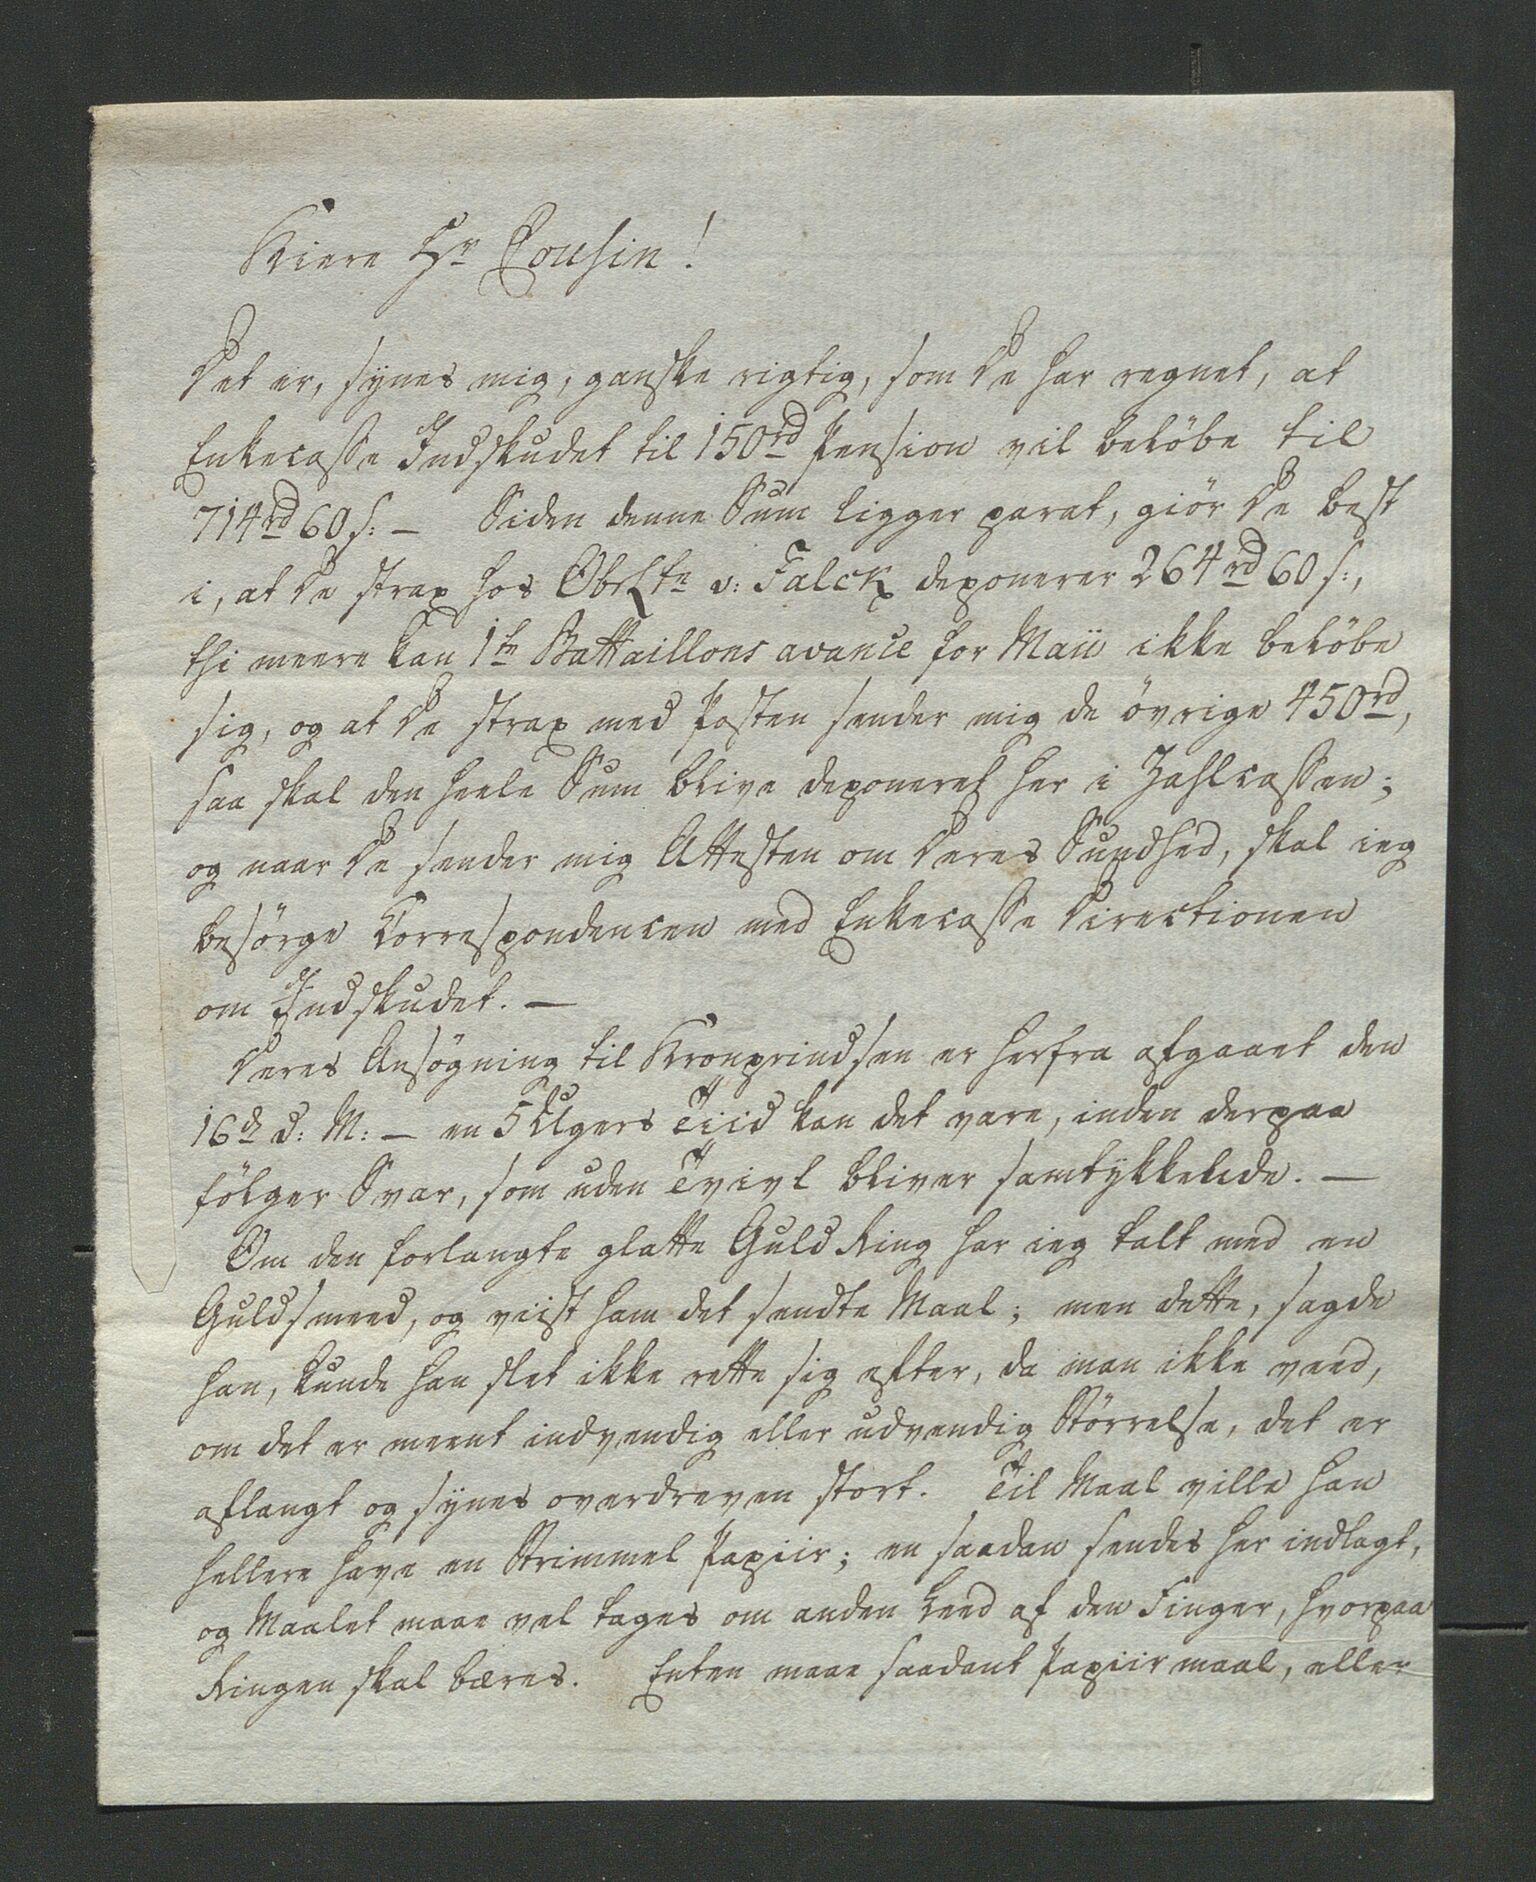 Kiere Hr Cousin!
Det er, synes mig, ganske rigtig, som De har regnet, at
Enkecasse Indskudet til 150rd Pension vil beløbe til
714rd 60 s: — Siden denne Sum ligger parat, giør De best
i, at De strax hos ObrLtn v: Falck deponerer 264rd 60 s:,
thi meere kan 1te Battaillons avance for Maii ikke beløbe
sig, og at De strax med Posten sender mig de øvrige 450rd,
saa skal den heele Sum blive deponeret her i Zahlcassen;
og naar De sender mig Attesten om Deres Sundhed, skal ieg
besørge Correspondencen med Enkecasse Directionen
om Indskudet. —
Deres Ansøgning til Kronprindsen er herfra afgaaet den
16d d: M: — en 5 Ugers Tiid kan det vare, inden derpaa
følger Svar, som uden Tvivl bliver samtykkende. —
Om den forlangte glatte Guld Ring har ieg talt med en
Guldsmeed, og viist ham det sendte Maal; men dette, sagde
han, kunde han slet ikke rette sig efter, da man ikke veed,
om det er meent indvendig eller udvendig Størrelse, det er
aflangt og synes overdreven stort. Til Maal ville han
hellere have en Strimmel Papiir; en saadan sendes her indlagt,
og Maalet maae vel tages om anden Leed af den Finger, hvorpaa
Ringen skal bæres. Enten maae saadant Papiir maal, eller